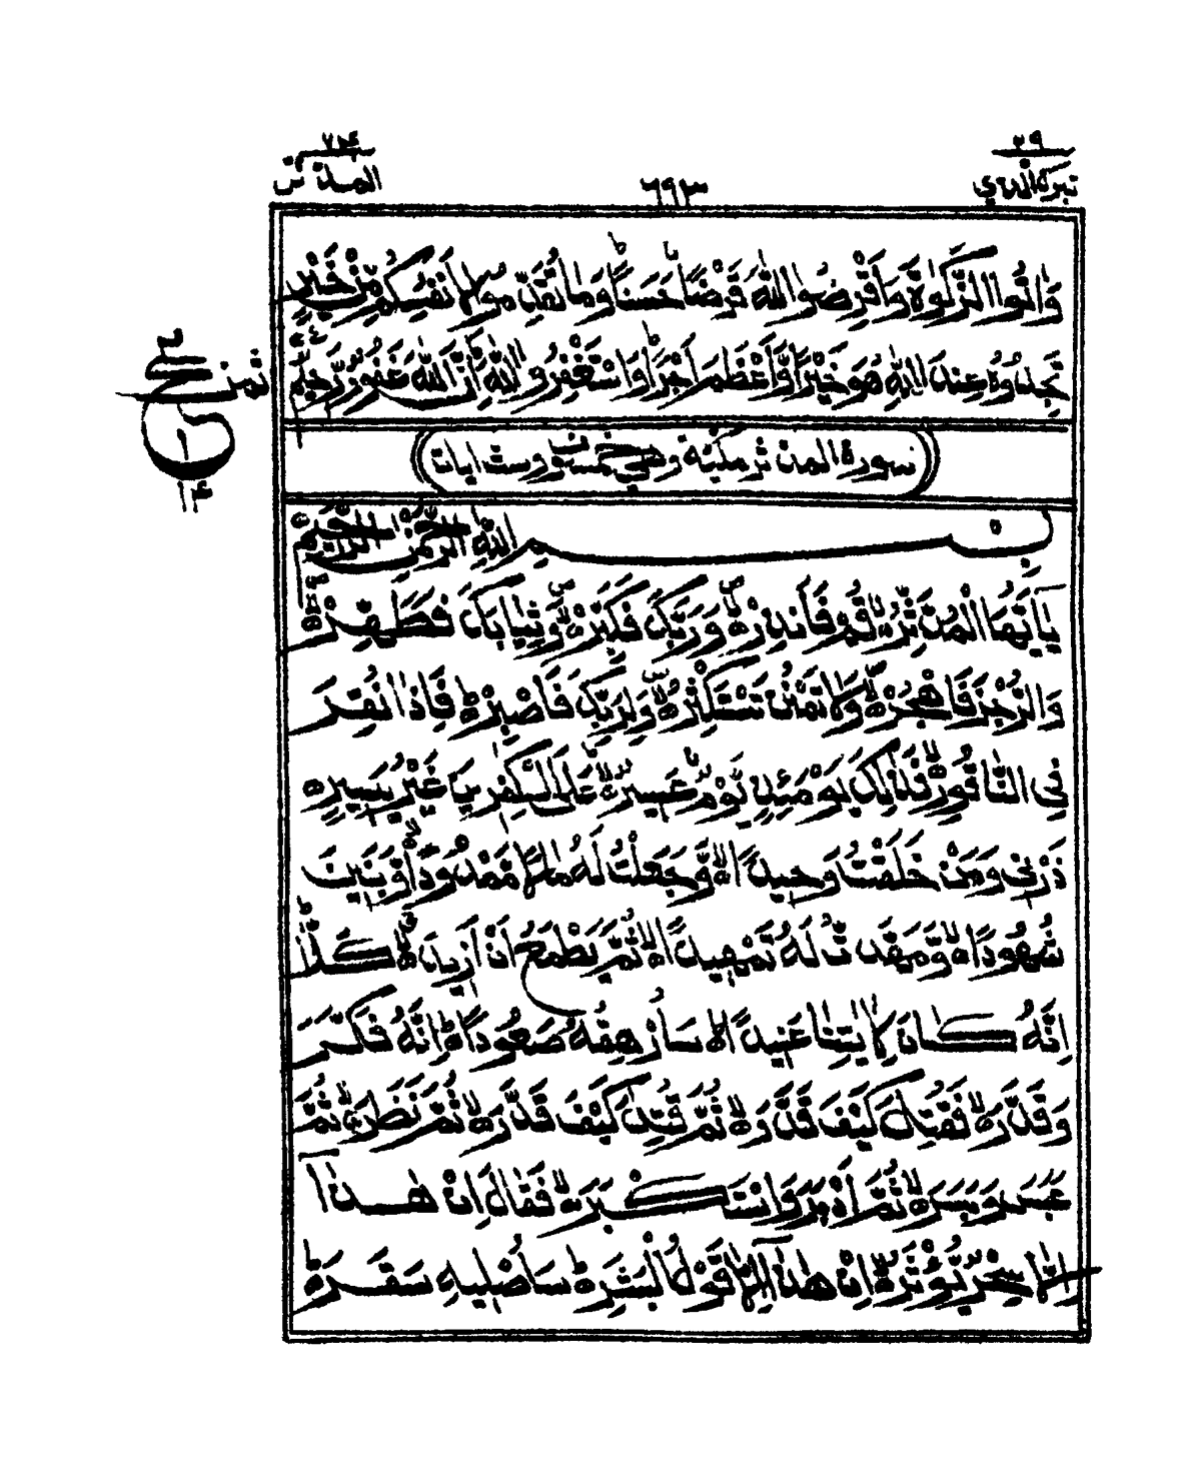 ٢٩
تبرك الذي
٦٩٣
٧٤
المدثر
وَاٰتُوا الزَّكٰوةَ وَاَقْرِضُوا اللّٰهَ قَرْضًا حَسَنًا ؕ وَمَا تُقَدِّمُوْا لِاَنْفُسِكُمْ مِّنْ خَيْرٍ
تَجِدُوْهُ عِنْدَ اللّٰهِ هُوَ خَيْرًا وَّاَعْظَمَ اَجْرًا ؕ وَاسْتَغْفِرُوا اللّٰهَ ؕ اِنَّ اللّٰهَ غَفُوْرٌ رَّحِيْمٌ
سورة المدثر مكية وهي خمسون وست ايات
بِسْمِ اللّٰهِ الرَّحْمٰنِ الرَّحِيْمِ
يٰۤاَيُّهَا الْمُدَّثِّرُ ۙ قُمْ فَاَنْذِرْ ۙ وَرَبَّكَ فَكَبِّرْ ۙ وَثِيَابَكَ فَطَهِّرْ ۙ
وَالرُّجْزَ فَاهْجُرْ ۙ وَلَا تَمْنُنْ تَسْتَكْثِرُ ۙ وَلِرَبِّكَ فَاصْبِرْ ؕ فَاِذَا نُقِرَ
فِي النَّاقُوْرِ ۙ فَذٰلِكَ يَوْمَئِذٍ يَّوْمٌ عَسِيْرٌ ۙ عَلَى الْكٰفِرِيْنَ غَيْرُ يَسِيْرٍ
ذَرْنِيْ وَمَنْ خَلَقْتُ وَحِيْدًا ۙ وَّجَعَلْتُ لَهٗ مَالًا مَّمْدُوْدًا ۙ وَّبَنِيْنَ
شُهُوْدًا ۙ وَّمَهَّدْتُّ لَهٗ تَمْهِيْدًا ۙ ثُمَّ يَطْمَعُ اَنْ اَزِيْدَ ۙ كَلَّا ؕ
اِنَّهٗ كَانَ لِاٰيٰتِنَا عَنِيْدًا ؕ سَاُرْهِقُهٗ صَعُوْدًا ؕ اِنَّهٗ فَكَّرَ
وَقَدَّرَ ۙ فَقُتِلَ كَيْفَ قَدَّرَ ۙ ثُمَّ قُتِلَ كَيْفَ قَدَّرَ ۙ ثُمَّ نَظَرَ ۙ ثُمَّ
عَبَسَ وَبَسَرَ ۙ ثُمَّ اَدْبَرَ وَاسْتَكْبَرَ ۙ فَقَالَ اِنْ هٰذَاۤ
اِلَّا سِحْرٌ يُّؤْثَرُ ۙ اِنْ هٰذَاۤ اِلَّا قَوْلُ الْبَشَرِ ؕ سَاُصْلِيْهِ سَقَرَ ؕ